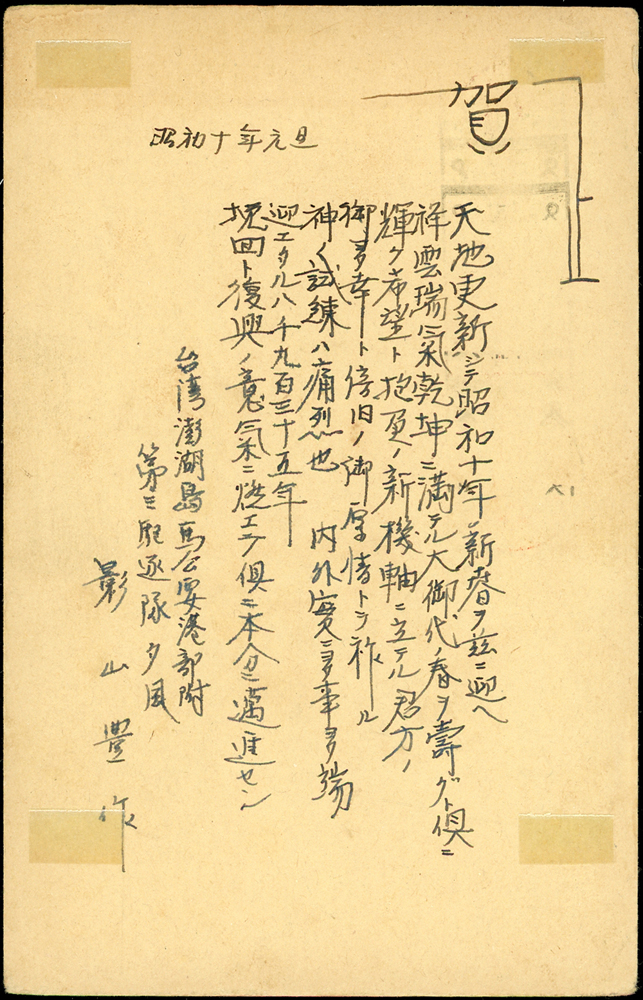 賀正
天地更新シテ昭和十年ノ新春ヲ茲ニ迎ヘ
祥雲瑞氣乾坤ニ満テル大御代ノ春ヲ壽グト倶ニ
輝ク希望ト抱負ノ新機軸ニ立テル君方ノ
御多幸ト倍旧ノ御厚情トヲ祚ル
神ノ試練ハ痛烈也 内外實ニ多事多端
迎エタル八千九百三十五年
挽回ト復興ノ意氣ニ燃エテ倶ニ本分ニ邁進セン
昭和十年元旦
台湾澎湖島馬公要港部附
第三駆逐隊夕風
影山豊作